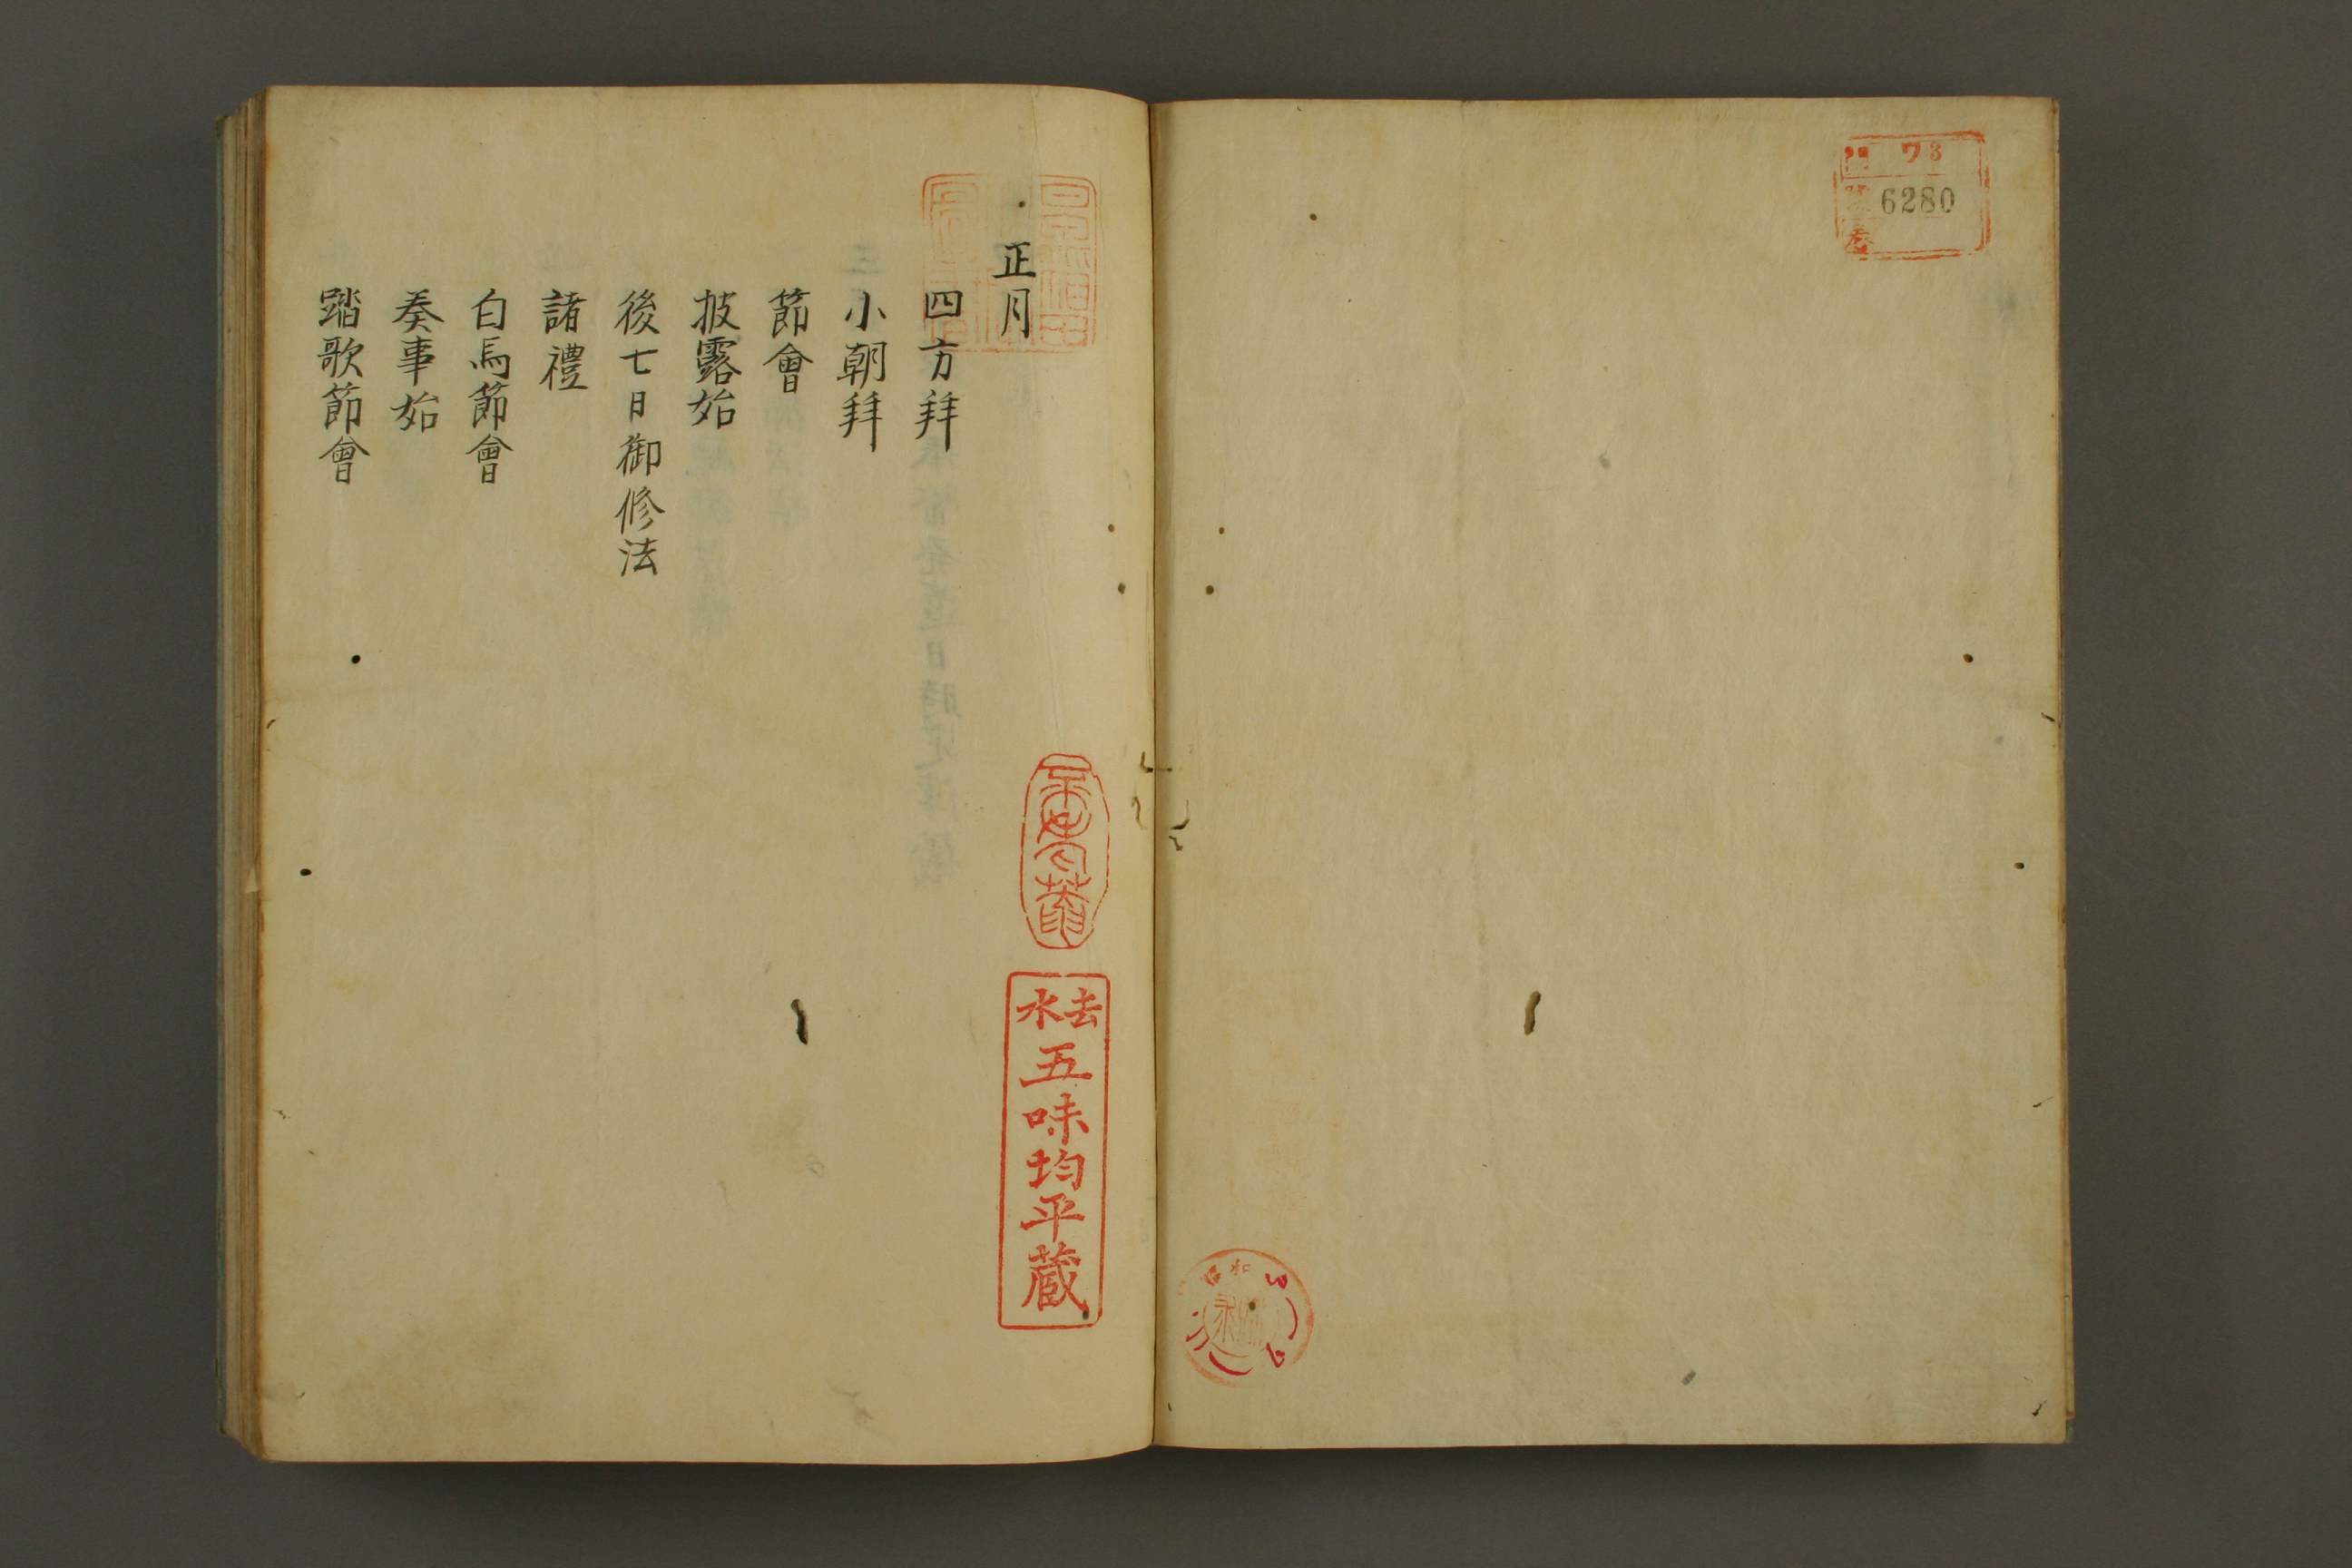 ワ3
6280
正月
四方拜
小朝拜
節會
披露始
後七日御修法
諸禮
白馬節會
奏事始
踏歌節會
去水
五味均平蔵
昭和